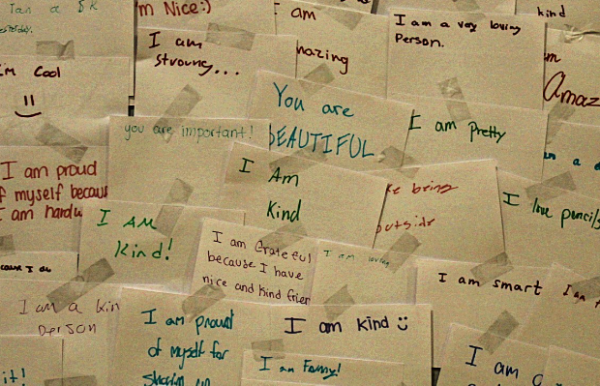 I am a 5K
yesterday.
m Nice:)
I am
I am a very loving
Person.
kind
I am
Strong...
mazing
m
Amaz
I'm Cool
You are
BEAUTIFUL
you are important!
I am pretty
I am proud
f myself becaus
I am hard
I Am
Kind
outside
I love pencils
I AM
Kind!
I am Grateful
because I have
nice and kind frien
I am loving
I am smart
I am a kin
person
I am proud
of myself for
I am Kind
I am Funny!
I am
it!